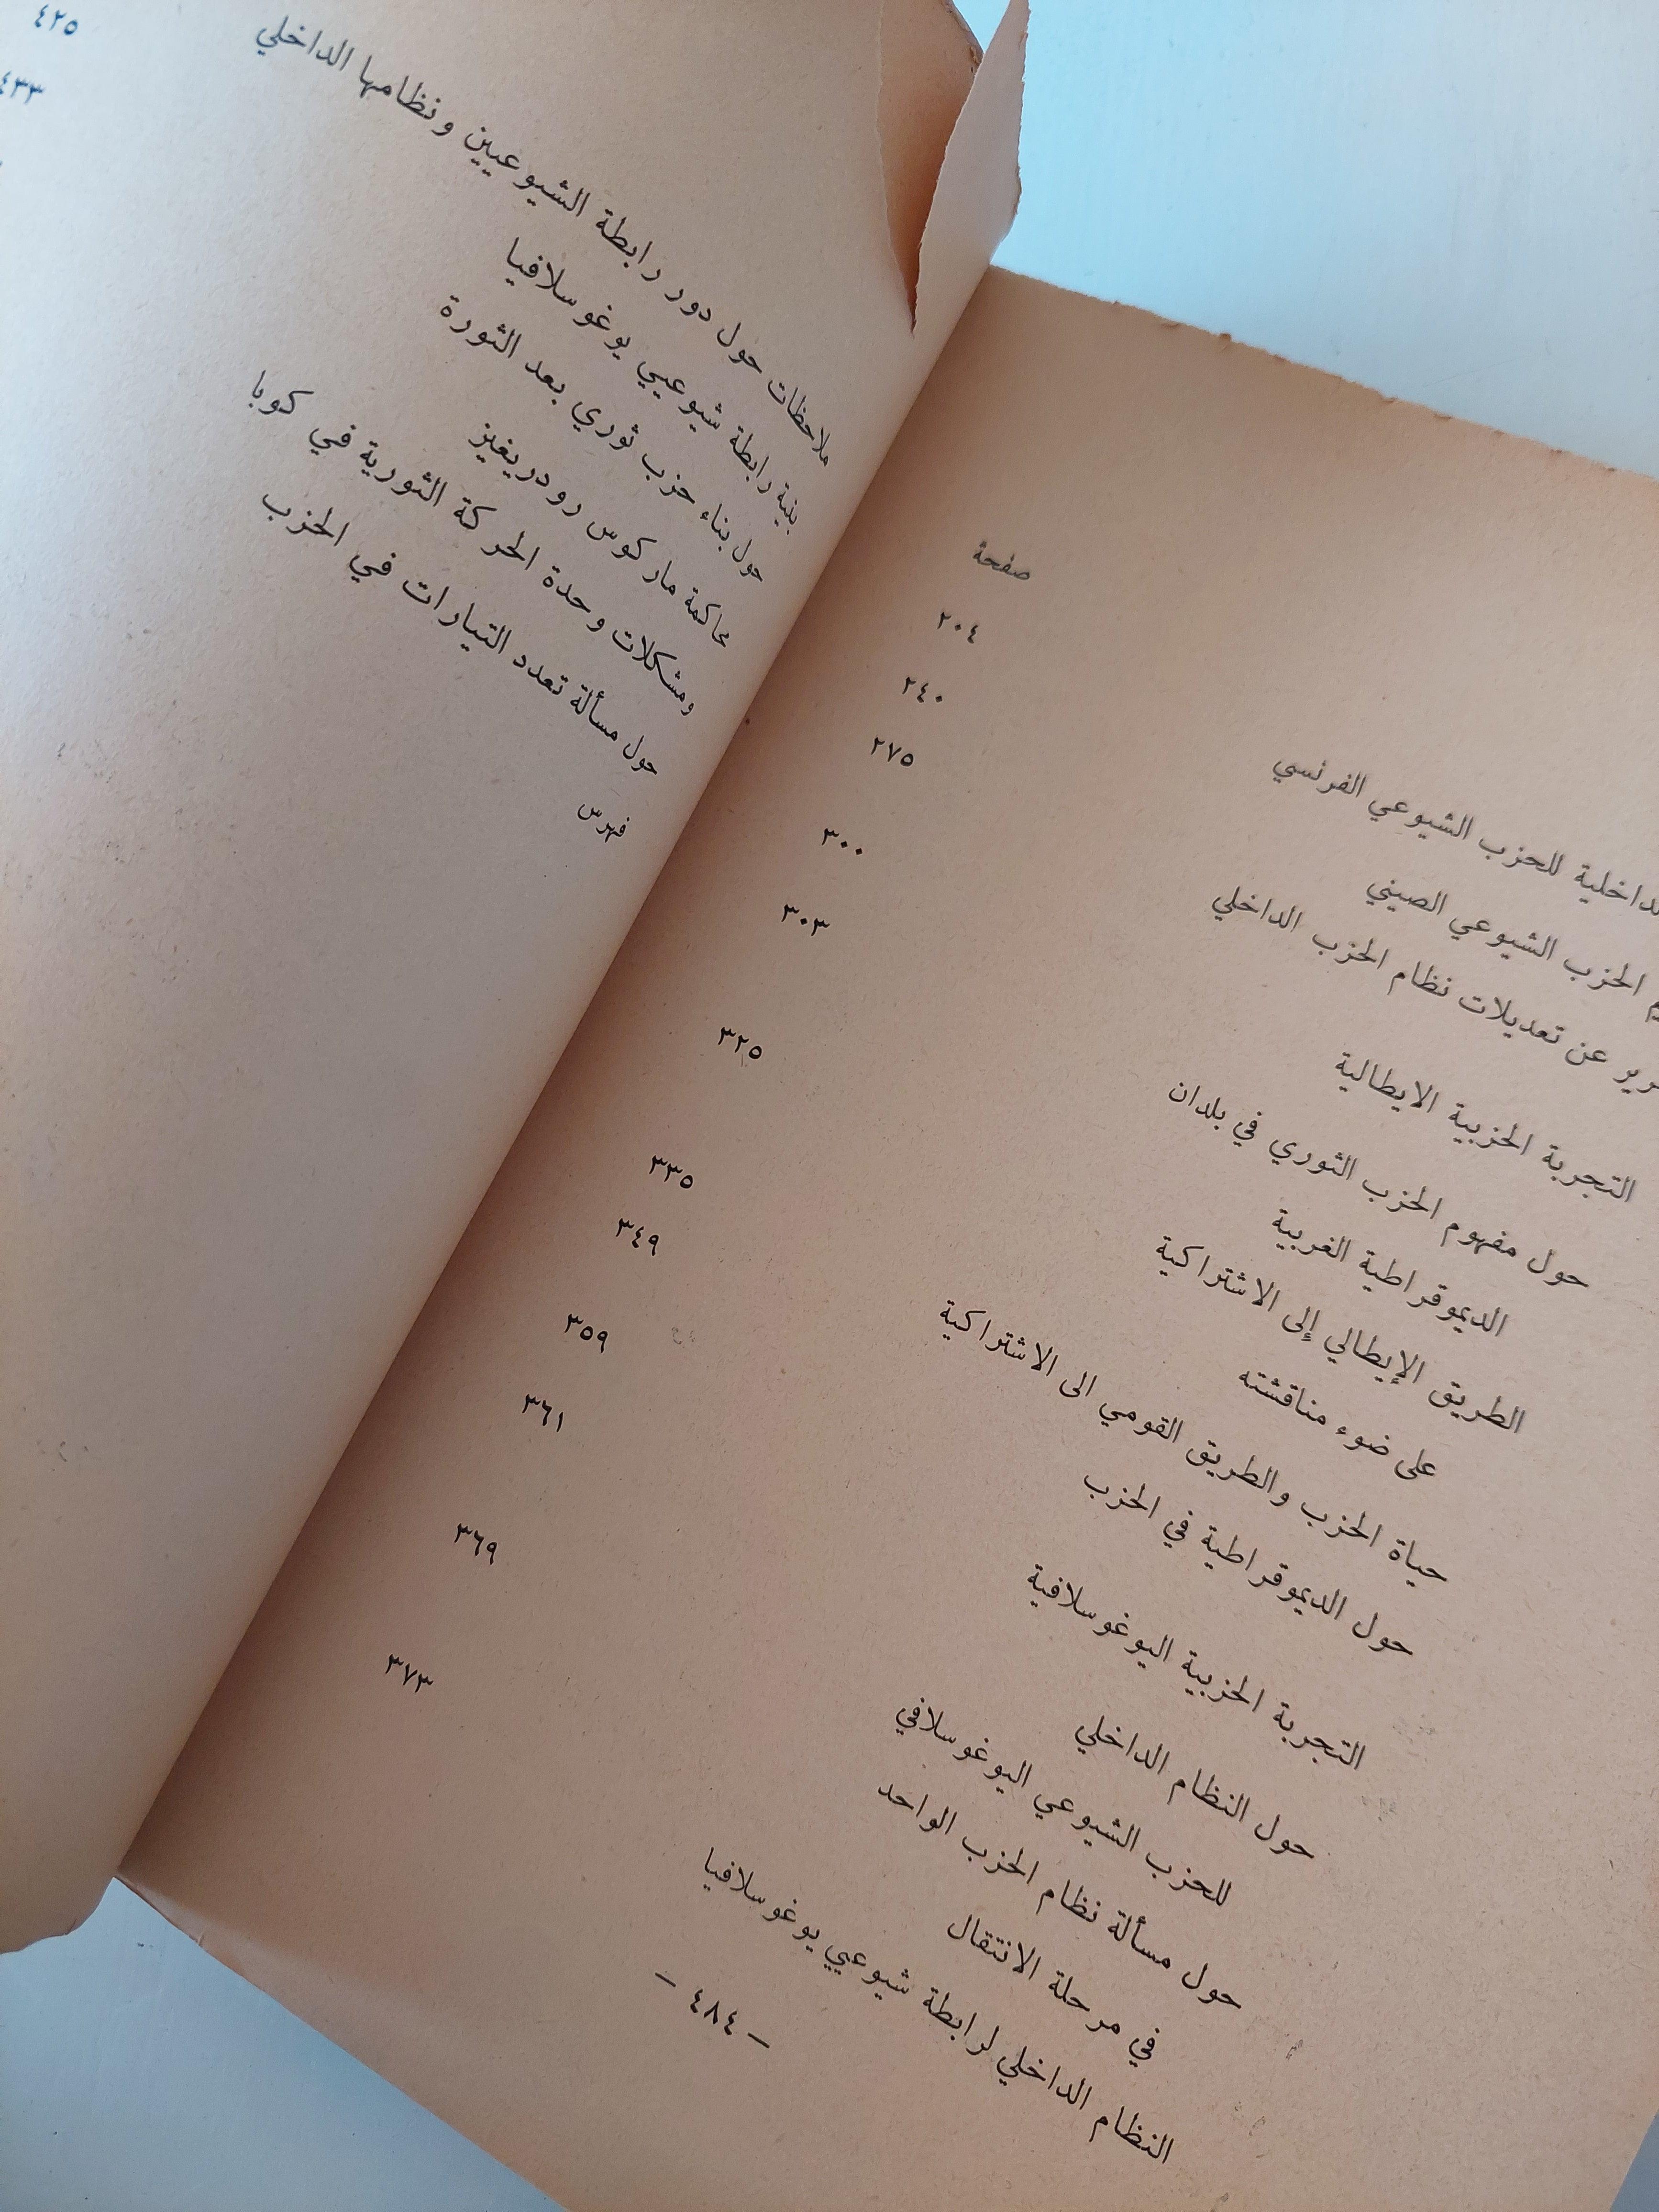 صفحة
داخلية للحزب الشيوعي الفرنسي ٢٠٤
الحزب الشيوعي الصيني ٢٤٠
عن تعديلات نظام الحزب الداخلي ٢٧٥
التجربة الحزبية الايطالية ٣٠٠
حول مفهوم الحزب الثوري في بلدان
الديموقراطية الغربية ٣٠٣
الطريق الإيطالي إلى الاشتراكية
على ضوء مناقشته ٣٢٥
حياة الحزب والطريق القومي الى الاشتراكية ٣٣٥
حول الديموقراطية في الحزب ٣٤٩
التجربة الحزبية اليوغوسلافية ٣٥٩
حول النظام الداخلي
للحزب الشيوعي اليوغوسلافي ٣٦١
حول مسألة نظام الحزب الواحد
في مرحلة الانتقال ٣٦٩
النظام الداخلي لرابطة شيوعيي يوغوسلافيا ٣٧٣
– ٤٨٤ –
ملاحظات حول دور رابطة الشيوعيين ونظامها الداخلي ٤٢٥
بنية رابطة شيوعيي يوغوسلافيا ٤٣٣
حول بناء حزب ثوري بعد الثورة
محاكمة ماركوس رودريغيز
ومشكلات وحدة الحركة الثورية في كوبا
حول مسألة تعدد التيارات في الحزب
فهرس